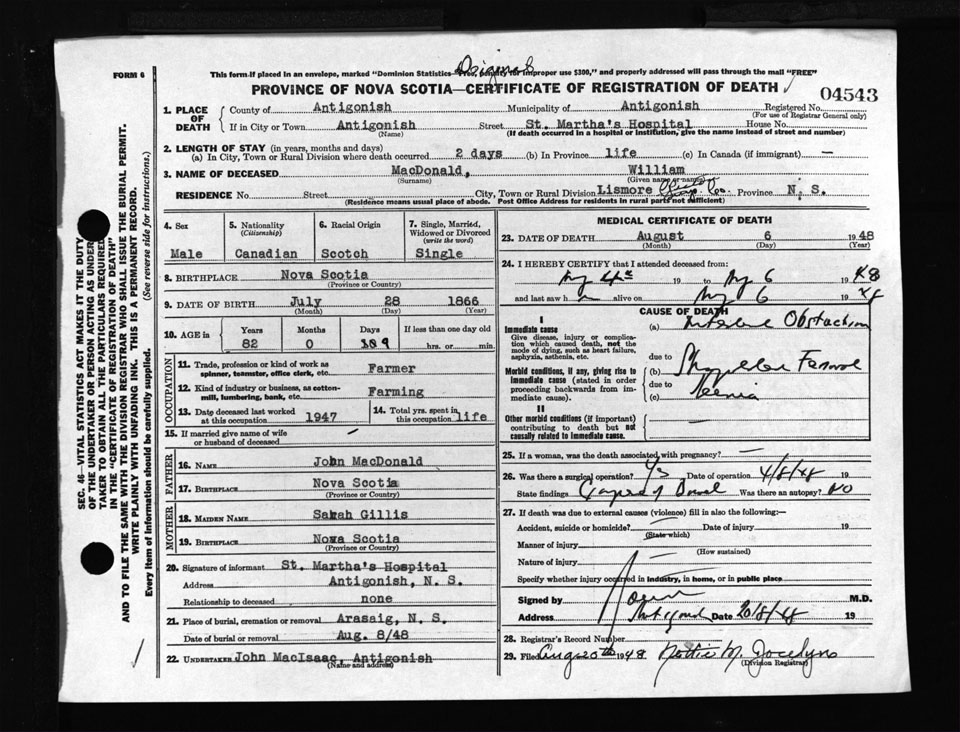 Original
FORM 6
This form if placed in an envelope, marked "Dominion Statistics—Free, penalty for improper use $300," and properly addressed will pass through the mail "FREE"
PROVINCE OF NOVA SCOTIA—CERTIFICATE OF REGISTRATION OF DEATH
04543
1. PLACE OF DEATH
County of Antigonish Municipality of Antigonish Registered No.
(For use of Registrar General only)
If in City or Town Antigonish Street St. Martha's Hospital House No.
(Name) (If death occurred in a hospital or institution, give the name instead of street and number)
2. LENGTH OF STAY (in years, months and days)
(a) In City, Town or Rural Division where death occurred 2 days (b) In Province life (c) In Canada (if immigrant) —
3. NAME OF DECEASED MacDonald, William
(Surname) (Given name or names)
RESIDENCE No. Street City, Town or Rural Division Lismore Province N. S.
(Residence means usual place of abode. Post Office Address for residents in rural parts not sufficient)
4. Sex
Male
5. Nationality
(Citizenship)
Canadian
6. Racial Origin
Scotch
7. Single, Married, Widowed or Divorced
(write the word)
Single
8. BIRTHPLACE Nova Scotia
(Province or Country)
9. DATE OF BIRTH July 28 1866
(Month) (Day) (Year)
10. AGE in Years Months Days If less than one day old
82 0 9 hrs. or min.
OCCUPATION
11. Trade, profession or kind of work as spinner, teamster, office clerk, etc. Farmer
12. Kind of industry or business, as cotton-mill, lumbering, bank, etc. Farming
13. Date deceased last worked at this occupation 1947
14. Total yrs. spent in this occupation life
15. If married give name of wife or husband of deceased —
FATHER
16. NAME John MacDonald
17. BIRTHPLACE Nova Scotia
(Province or Country)
MOTHER
18. MAIDEN NAME Sarah Gillis
19. BIRTHPLACE Nova Scotia
(Province or Country)
20. Signature of informant St. Martha's Hospital
Address Antigonish, N. S.
Relationship to deceased none
21. Place of burial, cremation or removal Arasaig, N. S.
Date of burial or removal Aug. 8/48
22. UNDERTAKER John MacIsaac, Antigonish
(Name and address)
MEDICAL CERTIFICATE OF DEATH
23. DATE OF DEATH August 6 1948
(Month) (Day) (Year)
24. I HEREBY CERTIFY that I attended deceased from:
Aug 4th 19 to Aug 6 1948
and last saw h alive on Aug 6 1948
CAUSE OF DEATH
I
Immediate cause
Give disease, injury or complication which caused death, not the mode of dying, such as heart failure, asphyxia, asthenia, etc.
(a) Intestinal Obstruction
due to
Morbid conditions, if any, giving rise to immediate cause (stated in order proceeding backwards from immediate cause).
(b) Strangulated Femoral
due to
(c) Hernia
II
Other morbid conditions (if important) contributing to death but not causally related to immediate cause.
—
25. If a woman, was the death associated with pregnancy? —
26. Was there a surgical operation? Yes Date of operation 4/8/48 19
State findings Gangrene of Bowel Was there an autopsy? No
27. If death was due to external causes (violence) fill in also the following:—
Accident, suicide or homicide? — Date of injury 19
(State which)
Manner of injury
(How sustained)
Nature of injury —
Specify whether injury occurred in industry, in home, or in public place
Signed by M.D.
Address Antigonish Date 20/8/48 19
28. Registrar's Record Number
29. Filed Aug 20th 1948 M. Jocelyn
(Division Registrar)
SEC. 46—VITAL STATISTICS ACT MAKES IT THE DUTY
OF THE UNDERTAKER OR PERSON ACTING AS UNDERTAKER TO OBTAIN ALL THE PARTICULARS REQUIRED
IN THE "CERTIFICATE OF REGISTRATION OF DEATH"
AND TO FILE THE SAME WITH THE DIVISION REGISTRAR WHO SHALL ISSUE THE BURIAL PERMIT.
WRITE PLAINLY WITH UNFADING INK. THIS IS A PERMANENT RECORD.
Every item of information should be carefully supplied. (See reverse side for instructions.)